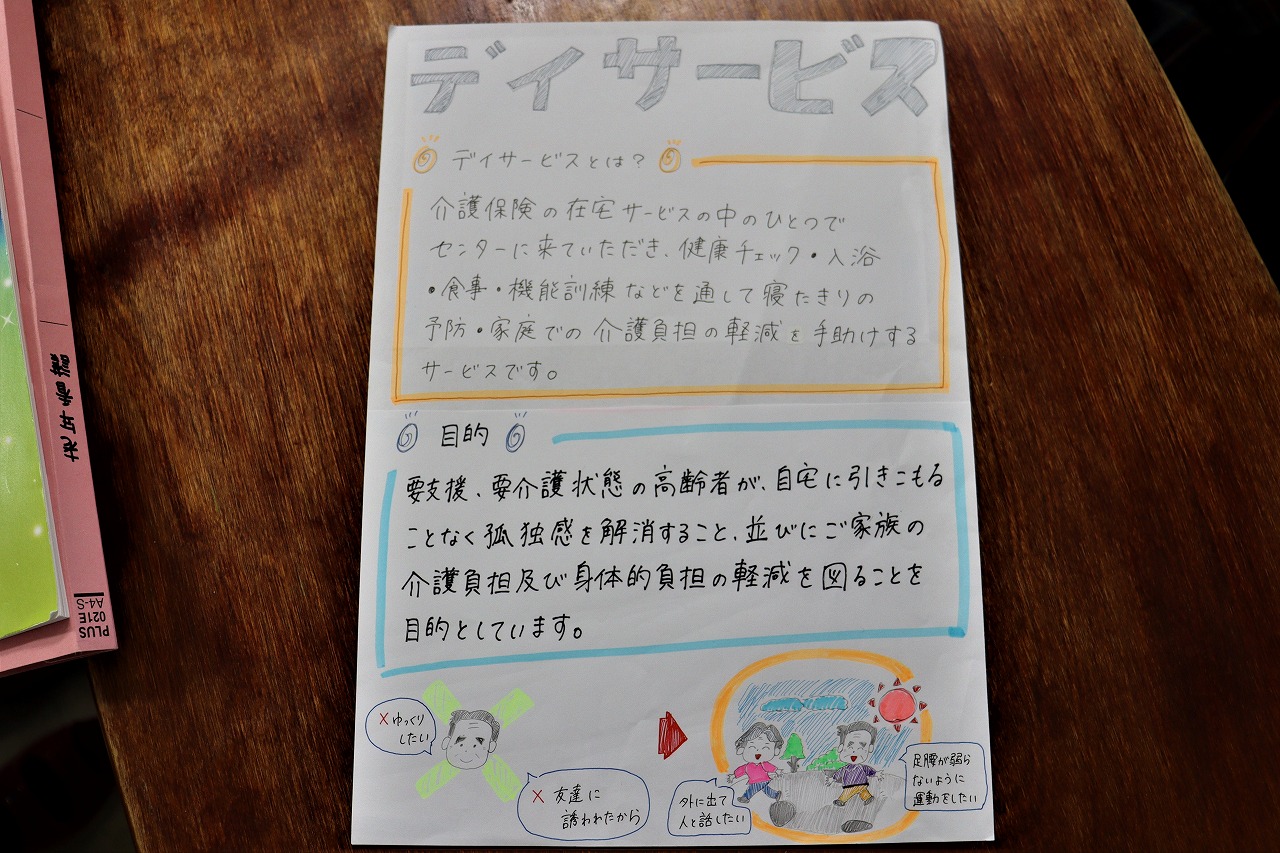 デイサービス
デイサービスとは？
介護保険の在宅サービスの中のひとつで
センターに来ていただき、健康チェック・入浴
・食事・機能訓練などを通して寝たきりの
予防・家庭での介護負担の軽減を手助けする
サービスです。
目的
要支援、要介護状態の高齢者が、自宅に引きこもる
ことなく孤独感を解消すること、並びにご家族の
介護負担及び身体的負担の軽減を図ることを
目的としています。
×ゆっくり
したい
×友達に
誘われたから
外に出て
人と話したい
足腰が弱ら
ないように
運動をしたい
老年看護
PLUS
021E
A4-S